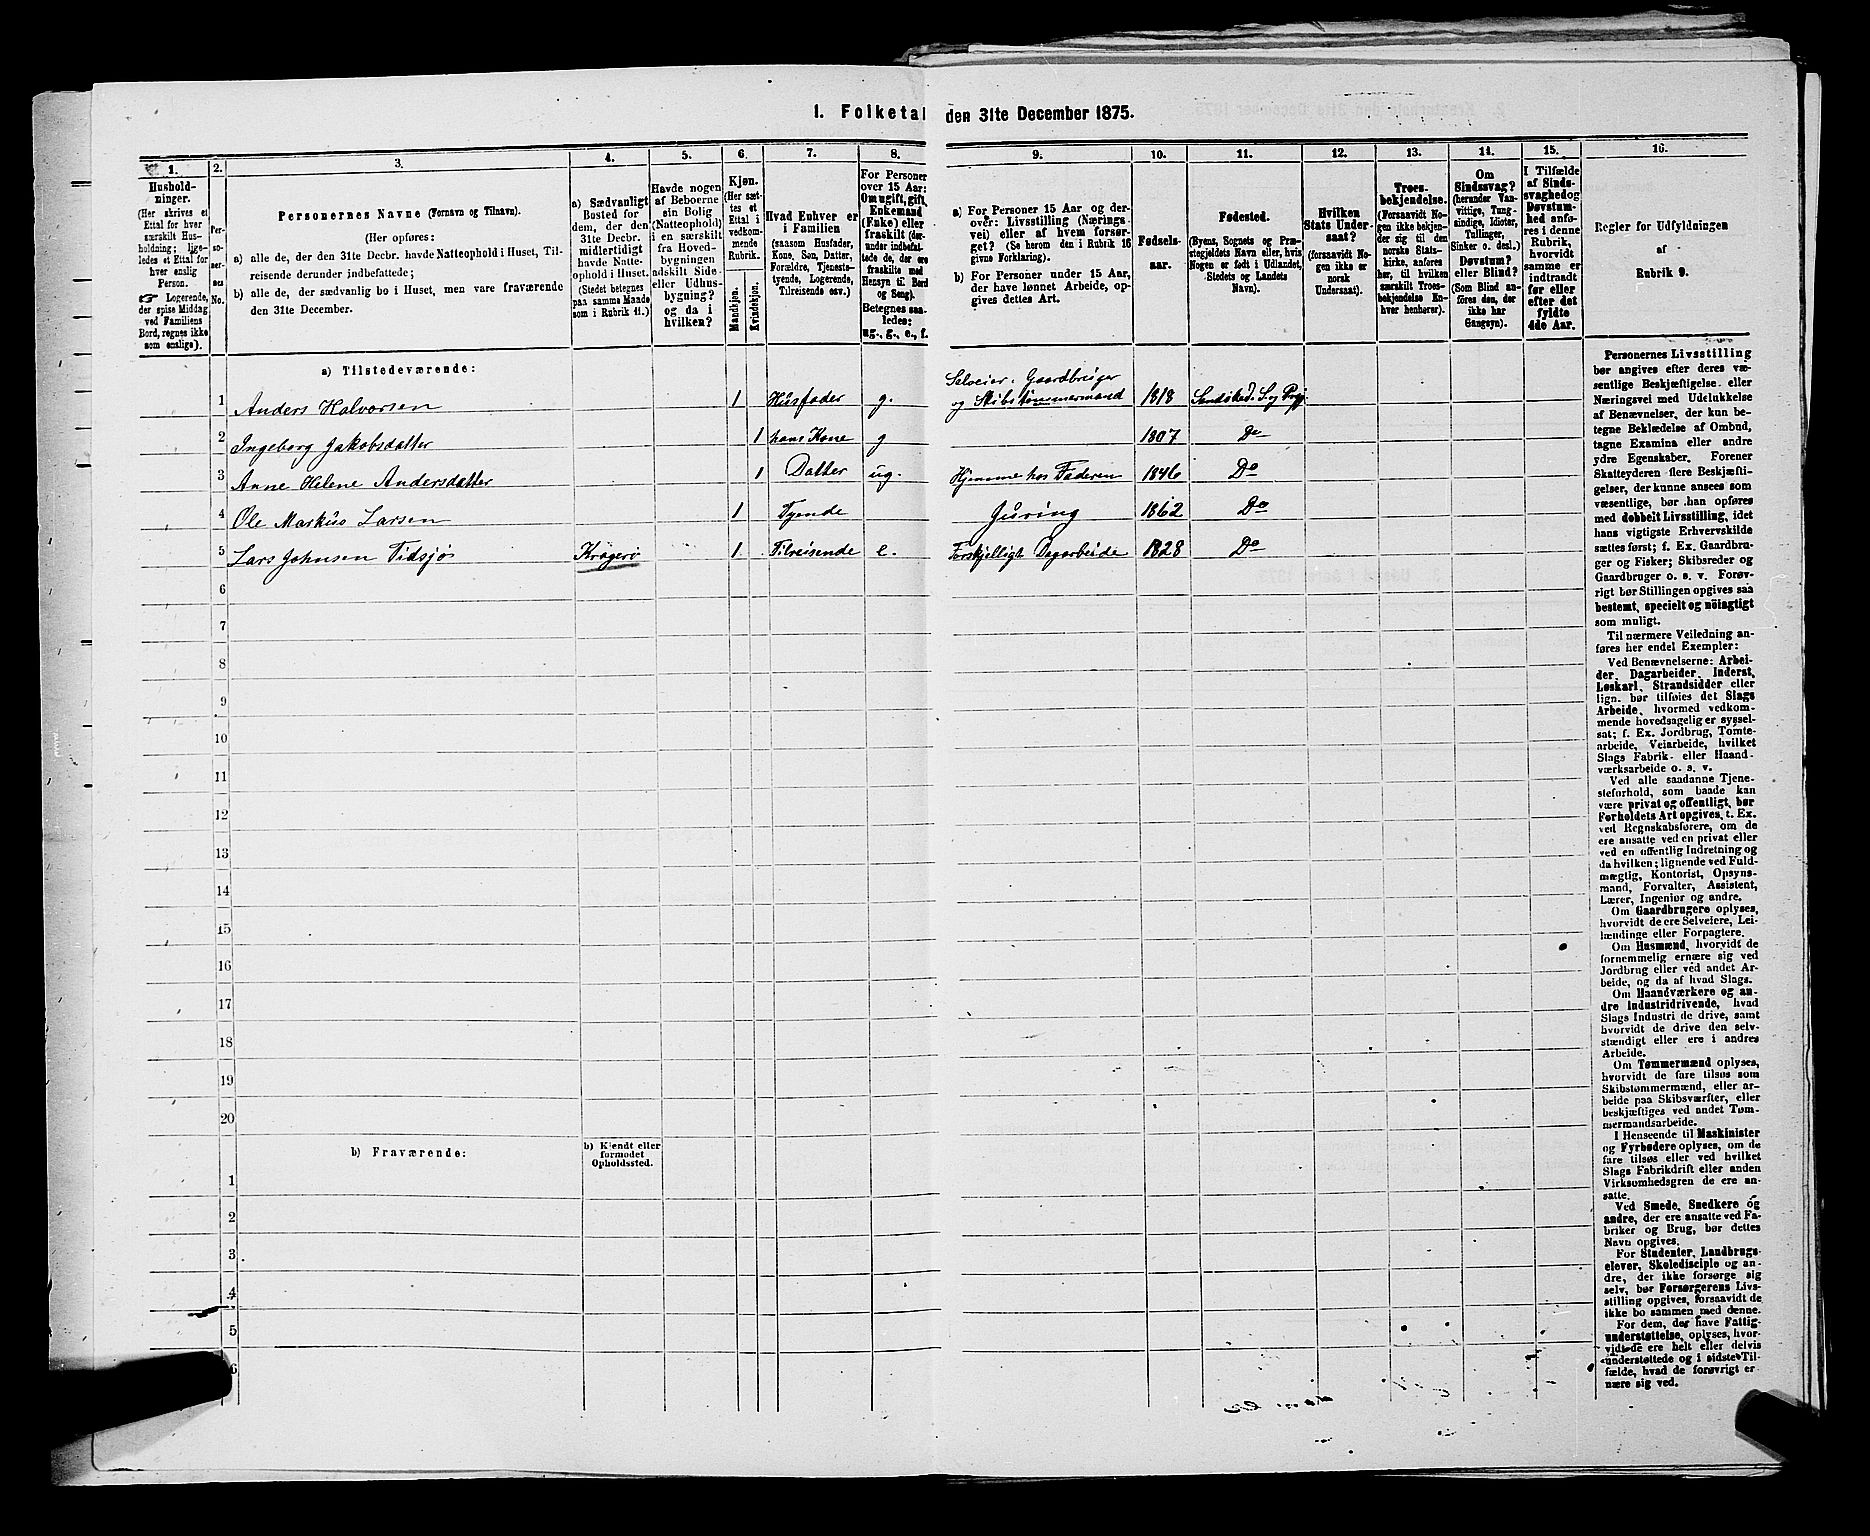 1. Folketal den 31te December 1875.
1. 2. 3. 4. 5. 6. 7. 8. 9. 10. 11. 12. 13. 14. 15. 16.
Hushold-
ninger.
(Her skrives et
Ettal for hver
særskilt Hus-
holdning; lige-
ledes et Ettal for
hver enslig
Person.
☞ Logerende,
der spise Middag
ved Familiens
Bord, regnes ikke
som enslige).
Per-
so-
ner-
nes
No.
Personernes Navne (Fornavn og Tilnavn).
(Her opføres:
a) alle de, der den 31te Decbr. havde Natteophold i Huset, Til-
reisende derunder indbefattede;
b) alle de, der sædvanlig bo i Huset, men vare fraværende
den 31te December.
a) Sædvanligt
Bosted for
dem, der den
31te Decbr.
midlertidigt
havde Natte-
ophold i Huset.
(Stedet betegnes
paa samme Maade
som i Rubrik 11.)
Havde nogen
af Beboerne
sin Bolig
(Natteophold)
i en særskilt
fra Hoved-
bygningen
adskilt Side-
eller Udhus-
bygning?
og da i
hvilken?
Kjøn.
(Her sæt-
tes et
Ettal i
vedkom-
mende
Rubrik.
Mandkjøn.
Kvindekjøn.
Hvad Enhver er
i Familien
(saasom Husfader,
Kone, Søn, Datter,
Forældre, Tjeneste-
tyende, Logerende,
Tilreisende osv.)
For Personer
over 15 Aar:
Om ugift, gift,
Enkemand
(Enke) eller
fraskilt (der-
under indbefat-
tede de, der ere
fraskilte med
Hensyn til Bord
og Seng).
Betegnes saa-
ledes:
ug., g., e., f.
a) For Personer 15 Aar og der-
over: Livsstilling (Nærings-
vei) eller af hvem forsør-
get? (Se herom den i Rubrik 16
givne Forklaring).
b) For Personer under 15 Aar,
der have lønnet Arbeide, op-
gives dettes Art.
Fødsels-
aar.
Fødested.
(Byens, Sognets og Præ-
stegjeldets Navn eller, hvis
Nogen er født i Udlandet,
Stedets og Landets
Navn).
Hvilken
Stats Under-
saat?
(forsaavidt No-
gen ikke er
norsk
Undersaat).
Troes-
bekjendelse.
(Forsaavidt No-
gen ikke bekjen-
der sig til den
norske Stats-
kirke, anføres
her, til hvilken
særskilt Troes-
bekjendelse En-
hver henhører).
Om
Sindssvag?
(herunder Van-
vittige, Tung-
sindige, Idioter,
Tullinger,
Sinker o. desl.)
Døvstum?
eller Blind?
(Som Blind an-
føres den, der
ikke har
Gangsyn).
I Tilfælde
af Sinds-
svaghed og
Døvstum-
hed anfø-
res i denne
Rubrik,
hvorvidt
samme er
indtraadt
før eller
efter det
fyldte
4de Aar.
Regler for Udfyldningen
af
Rubrik 9.
a) Tilstedeværende:
1 Anders Halvorsen 1 Husfader g. Selveier, Gaardbruger
og Skibstimmermand 1818 Sandøked. S. og Prgj.
2 Ingeborg Jakobsdatter 1 hans Kone g 1807 Do
3 Anne Helene Andersdatter 1 Datter ug. Hjemme hos Faderen 1846 Do
4 Ole Markus Larsen 1 Tyende Gjæring 1862 Do
5 Lars Johnsen Tidsjø Kragerø 1 Tilreisende e. Forskjelligt Dagarbeide 1828 Do
6
7
8
9
10
11
12
13
14
15
16
17
18
19
20
b) Fraværende:
b) Kjendt eller
formodet
Opholdssted.
1
2
3
4
5
6
Personernes Livsstilling
bør angives efter deres væ-
sentlige Beskjæftigelse eller
Næringsvei med Udelukkelse
af Benævnelser, der kun be-
tegne Beklædelse af Ombud,
tagne Examina eller andre
ydre Egenskaber. Forener
Skatteyderen flere Beskjæfti-
gelser, der kunne ansees som
væsentlige, bør han opføres
med dobbelt Livsstilling, idet
hans vigtigste Erhvervskilde
sættes først; f. Ex. Gaardbru-
ger og Fisker; Skibsreder og
Gaardbruger o. s. v. Forøv-
rigt bør Stillingen opgives saa
bestemt, specielt og nøiagtigt
som muligt.
Til nærmere Veiledning an-
føres her endel Exempler:
Ved Benævnelserne: Arbei-
der, Dagarbeider, Inderst,
Løskarl, Strandsidder eller
lign. bør tilføies det Slags
Arbeide, hvormed vedkom-
mende hovedsagelig er syssel-
sat; f. Ex. Jordbrug, Tomte-
arbeide, Veiarbeide, hvilket
Slags Fabrik- eller Haand-
værksarbeide o. s. v.
Ved alle saadanne Tjene-
steforhold, som baade kan
være privat og offentligt, bør
Forholdets Art opgives, t. Ex.
ved Regnskabsførere, om de
ere ansatte ved en privat eller
ved en offentlig Indretning og
da hvilken; lignende ved Fuld-
mægtig, Kontorist, Opsyns-
mand, Forvalter, Assistent,
Lærer, Ingeniør og andre.
Om Gaardbrugere oplyses,
hvorvidt de ere Selveiere, Lei-
lændinge eller Forpagtere.
Om Husmænd, hvorvidt de
fornemmelig ernære sig ved
Jordbrug eller ved andet Ar-
beide, og da af hvad Slags.
Om Haandværkere og an-
dre Industridrivende, hvad
Slags Industri de drive, samt
hvorvidt de drive den selv-
stændigt eller ere i andres
Arbeide.
Om Tømmermænd oplyses,
hvorvidt de fare tilsøs som
Skibstømmermænd, eller ar-
beide paa Skibsværfter, eller
beskjæftiges ved andet Tøm-
mermandsarbeide.
I Henseende til Maskinister
og Fyrbødere oplyses, om de
fare tilsøs eller ved hvilket
Slags Fabrikdrift eller anden
Virksomhedsgren de ere an-
satte.
Ved Smede, Snedkere og
andre, der ere ansatte ved Fa-
briker og Brug, bør dettes
Navn opgives.
For Studenter, Landbrugs-
elever, Skoledisciple og an-
dre, der ikke forsørge sig
selv, bør Forsørgerens Livs-
stilling opgives, forsaavidt de
ikke bo sammen med denne.
For dem, der have Fattig-
understøttelse, oplyses, hvor-
vidt de ere helt eller delvis
understøttede og i sidste Til-
fælde, hvad de forøvrigt er-
nære sig ved.